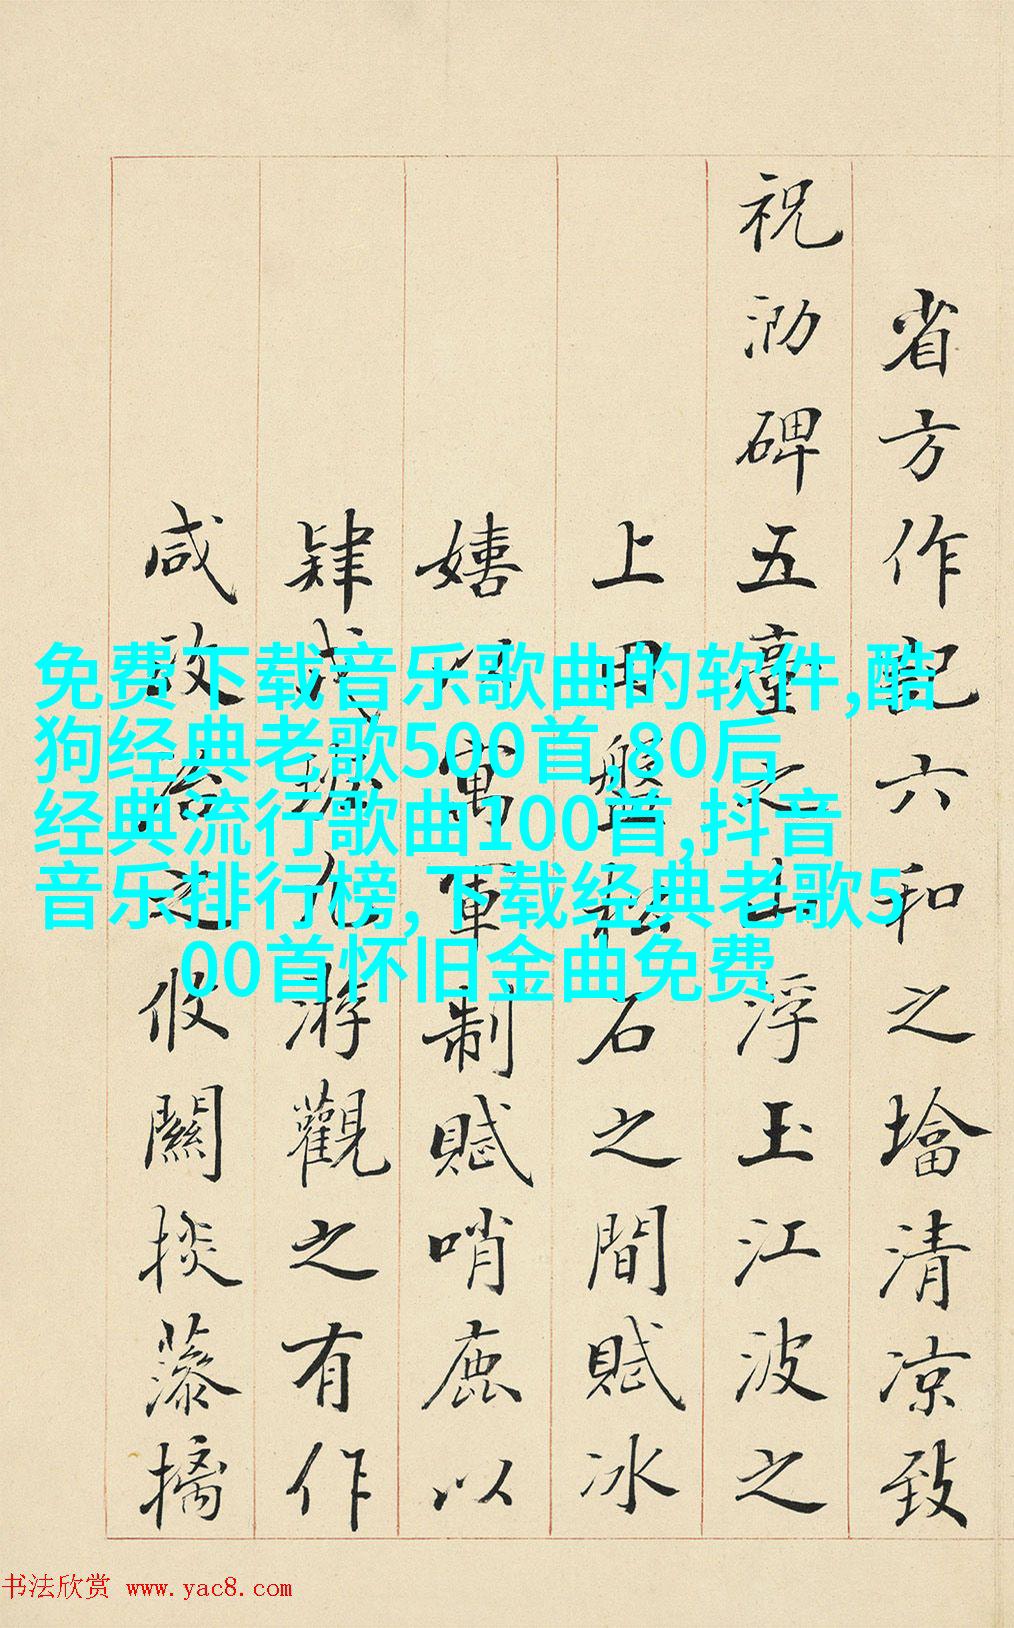 省方作記六和之墖清凉致
祝泐碑五臺之浮玉江波之
上田盤松石之間賦冰
嬉以寓軍制賦哨鹿以
肄游觀之有作
咸之攸關掞藻摛
免费下载音乐歌曲的软件,酷
狗经典老歌500首,80后
经典流行歌曲100首,抖音
音乐排行榜,下载经典老歌5
00首怀旧金曲免费
书法欣赏 www.yac8.com